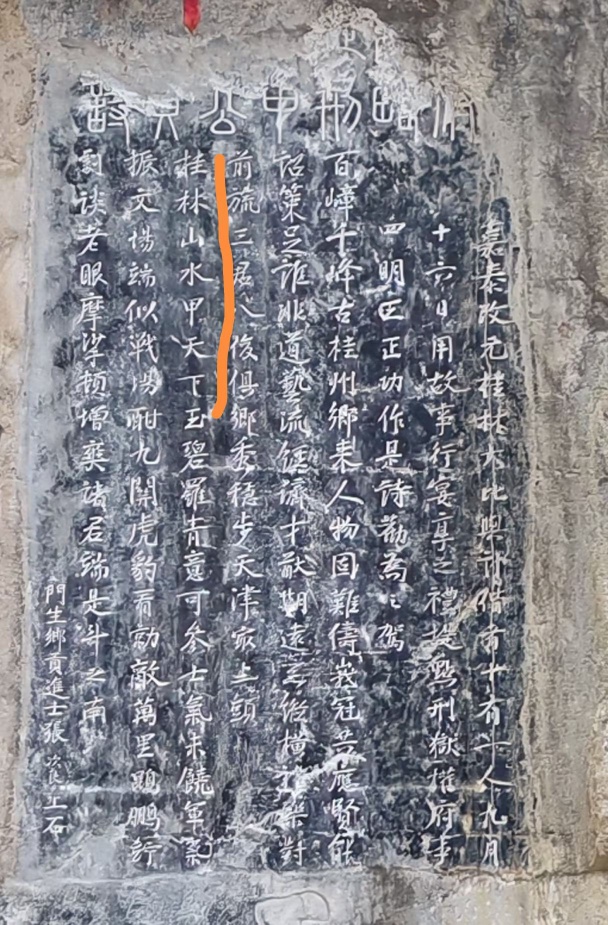 公 詩
嘉泰改元桂林大比與計偕者十有一人九月
十六日用故事行宴享之禮提點刑獄權府事
四明王正功作是詩勸為之駕
百嶂千峰古桂州鄉來人物固難儔峩冠共應賢能
詔策足誰非道藝流經濟才猷期遠器縱橫禮樂對
前旒三君八俊俱鄉秀穩步天津最上頭
桂林山水甲天下玉碧羅青意可參士氣未饒軍氣
振文場端似戰場酣九關虎豹看勍敵萬里鵾鵬佇
劇談老眼摩挲頓增爽諸君端是斗之南
門生鄉貢進士張次良上石